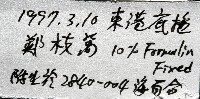 1997.3.10 東港底拖
鄭枝筠 10% Formalin
Fixed
附生於 2840-004 海百合